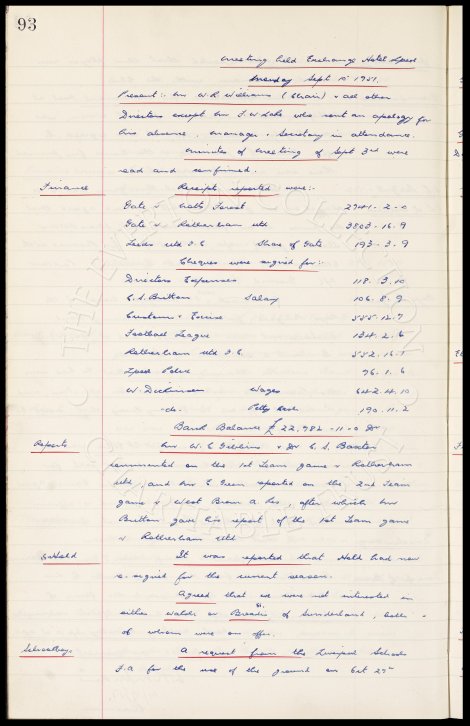 93
Meeting held Exchange Hotel L'pool
Monday Sept 10th 1951.
Present:- Mr W. R. Williams (Chair) & all other
Directors except Mr who sent an apology for
his absence. Manager & Secretary in attendance.
Minutes of Meeting of Sept 3rd were
read and confirmed.
Finance Receipts reported were:-
Gate v Notts Forest 2741 - 2 - 0
Gate v Rotherham Utd 3803 - 16 . 9
Leeds Utd F.C. Share of Gate 193 - 3 . 9
Cheques were signed for:-
Directors Expenses 118 . 3 . 10
C. S. Britton Salary 106 . 8 . 9
Customs & Excise 555 . 12 . 7
Football League 134 . 2 . 6
Rotherham Utd F.C. 552 . 16 . 1
L'pool Police 96 . 1 . 6
W. Dickinson Wages 642 . 4 . 10
-do- Petty Cash 190 . 11 . 2
Bank Balance £ 22,982 - 11 - 0 Dr
Reports Mr W. C. Gibbins & Dr C. S. Baxter
commented on the 1st Team game v Rotherham
Utd, and Mr E Green reported on the 2nd Team
game v West Brom A Res, after which Mr
Britton gave his report of the 1st Team game
v Rotherham Utd
Held It was reported that Held had now
re-signed for the current season.
Agreed that we were not interested in
either Walsh or of Sunderland, both
of whom were on offer.
Schoolboys A request from the Liverpool Schools
F.A for the use of the ground on Oct 27th
THE EVERTON COLLECTION
CHARITABLE